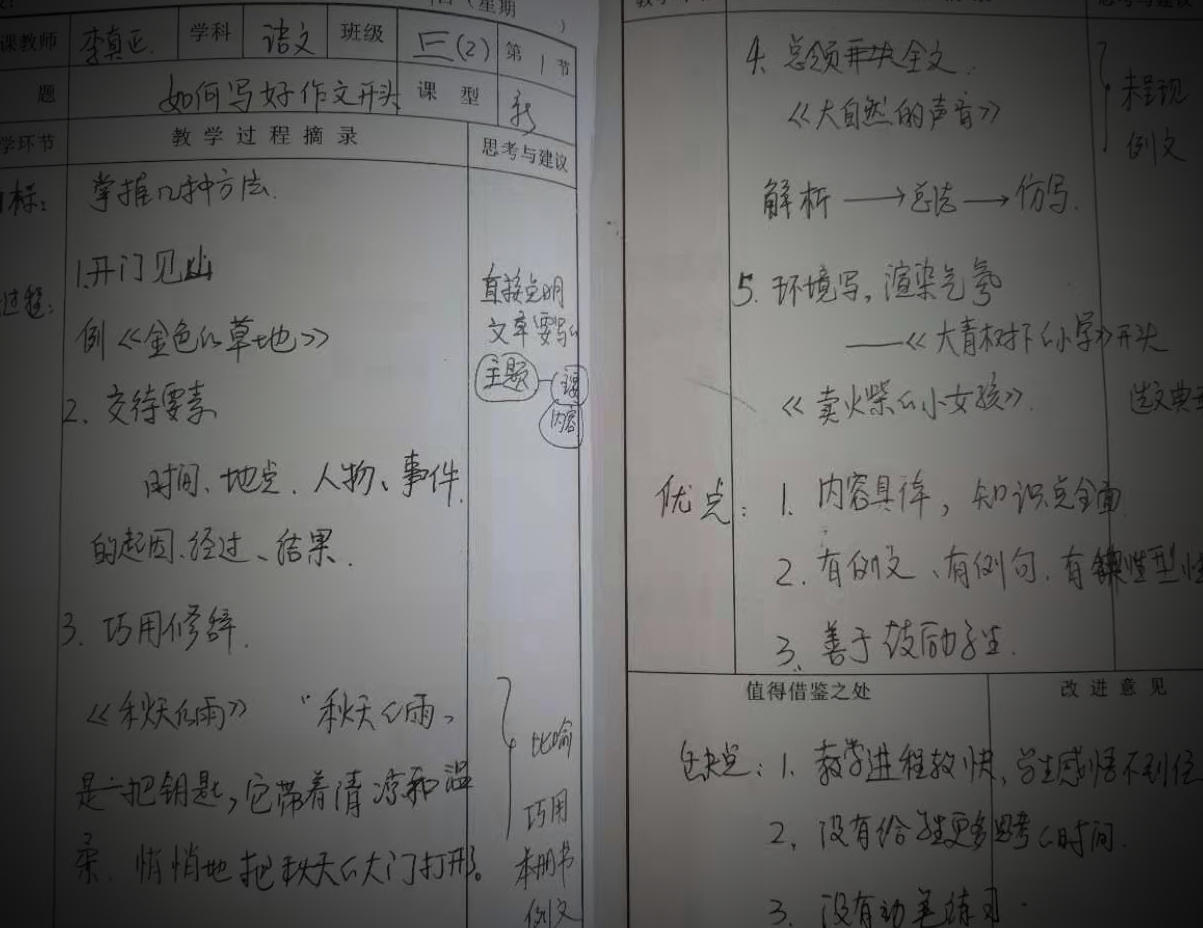 (星期 )
课教师 李真正 学科 语文 班级 三(2) 第 1 节
题 如何写好作文开头 课 型 新
学环节 教 学 过 程 摘 录 思考与建议
目标: 掌握几种方法.
过程: 1.开门见山
例《金色的草地》
直接点明
文章要写的
主题 — 主要
内容
2. 交待要素
时间、地点、人物、事件
的起因、经过、结果.
3. 巧用修辞.
《秋天的雨》 “秋天的雨,
是一把钥匙,它带着清凉和温
柔, 悄悄地把秋天的大门打开。
比喻
巧用
本册书
例文
4. 总领全文.
《大自然的声音》
未呈现
例文
解析 → 总结 → 仿写.
5. 环境写, 渲染气氛
——《大青树下的小学》开头
《卖火柴的小女孩》.
选文典型
优点: 1. 内容具体, 知识点全面
2. 有例文、有例句. 有
3. 善于鼓励学生.
值得借鉴之处 改 进 意 见
缺点: 1. 教学进程较快, 学生感悟不到位
2. 没有给学生更多思考的时间.
3. 没有动笔练习.